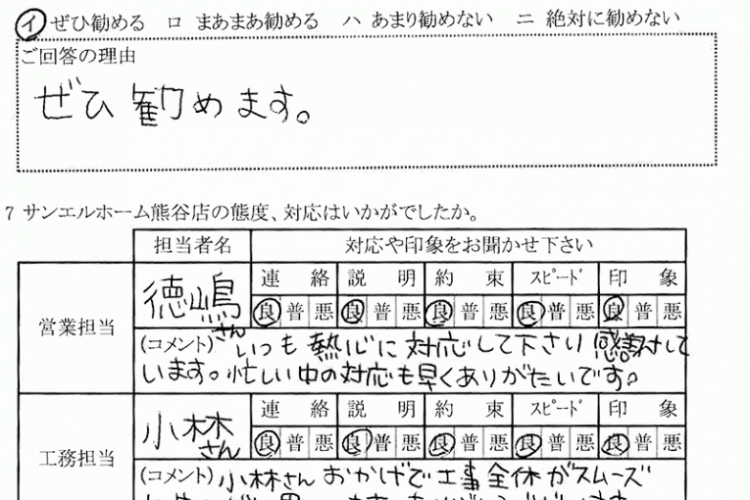 イ ぜひ勧める ロ まあまあ勧める ハ あまり勧めない ニ 絶対に勧めない
ご回答の理由
ぜひ勧めます。
7 サンエルホーム熊谷店の態度、対応はいかがでしたか。
担当者名 対応や印象をお聞かせ下さい
営業担当 徳嶋さん 連絡 説明 約束 スピード 印象
良 普 悪 良 普 悪 良 普 悪 良 普 悪 良 普 悪
(コメント) いつも熱心に対応して下さり感謝して
います。忙しい中の対応も早くありがたいです。
工務担当 小林さん 連絡 説明 約束 スピード 印象
良 普 悪 良 普 悪 良 普 悪 良 普 悪 良 普 悪
(コメント) 小林さんおかげで工事全体がスムーズ